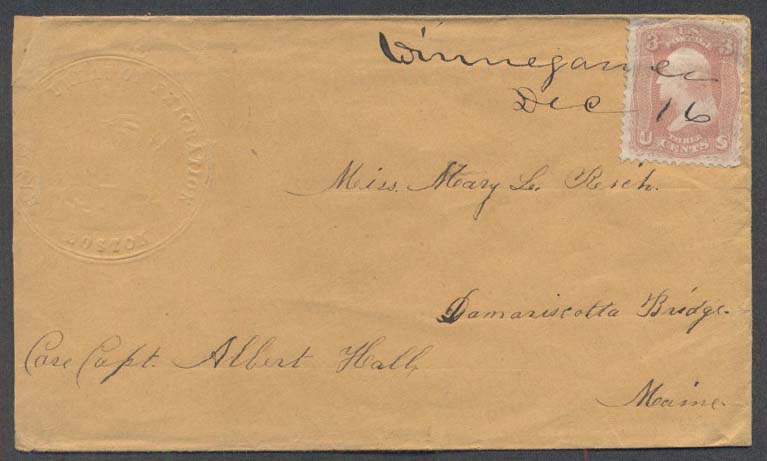 Winnegance
Dec 16
3 U.S. 3
POSTAGE
U THREE S
CENTS
Miss. Mary L. Resh.
Damariscotta Bridge.
Care Capt. Albert Hall,
Maine.
BOSTON